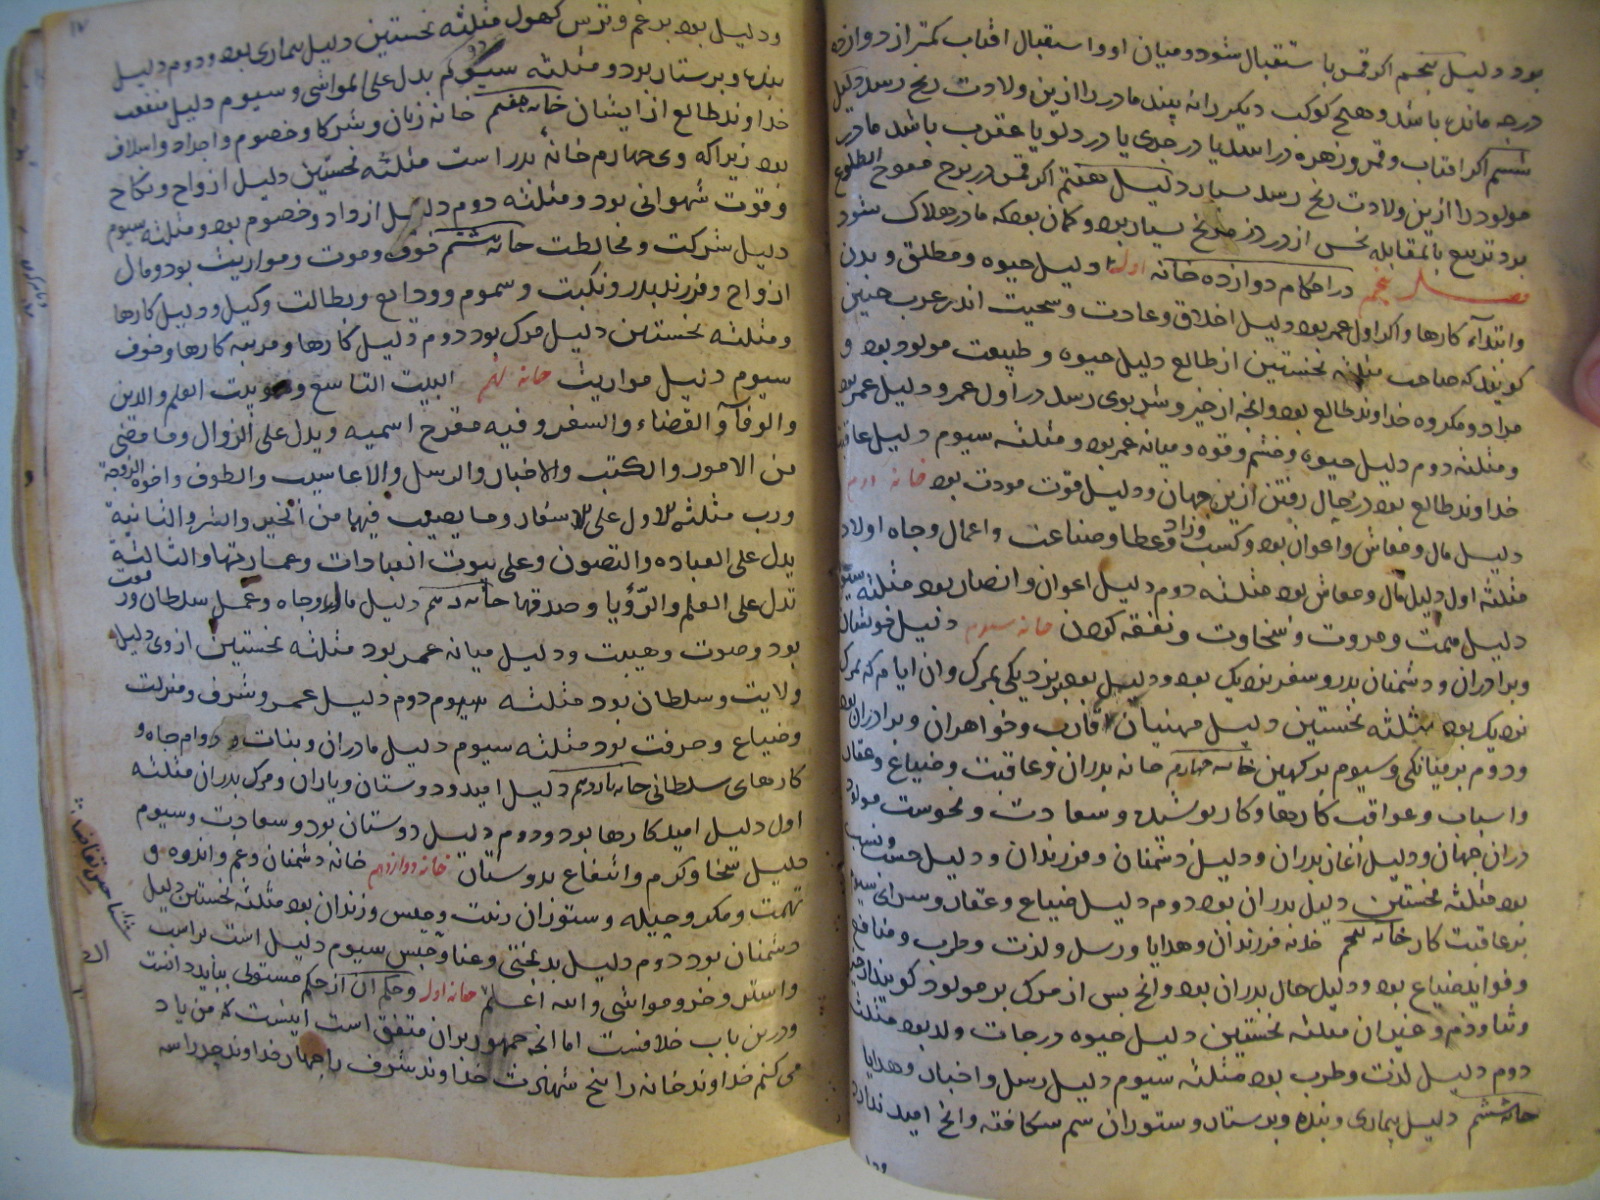 بود دلیل پنجم اکر قمر با ستقبال شود و میان او و استقبال افتاب کمتر از دوازده
درجه مانده باشد و هیچ کوکب دیکر را نه بیند مادر را ازین ولادت رنج رسد دلیل
ششم اکر افتاب و قمر و زهره در اسد یا در جدی یا در دلو یا عقرب باشد مادر
مولود را ازین ولادت رنج رسد بسیار دلیل هفتم اکر قمر در بروج معوج الطلوع
بود تربیع یا بمقابله نحس از در دزه رنج بسیار بود و کمان بود که مادر هلاک شود
فصل پنجم در احکام دوازده خانه خانه اول دلیل حیوه و مطلق و بدن
و ابتداء کارها و اکر اول عمر بود دلیل اخلاق و عادت و سحیت اندر عرب چنین
کویند که صاحب مثلثه نخستین از طالع دلیل حیوه و طبیعت مولود بود و
مراد و مکروه خداوند طالع بود و انچه از خیر و شر بوی رسد در اول عمر و دلیل عمر بود
و مثلثه دوم دلیل حیوه و خشم و قوه و میانه عمر بود و مثلثه سیوم دلیل عاقبت
خداوند طالع بود در حال رفتن ازین جهان و دلیل قوت مودت بود خانه دوم
دلیل مال و معاش و اعوان بود و کسب و زاد و عطا و صناعت و اعمال و جاه اولاد
مثلثه اول دلیل مال و معاش بود مثلثه دوم دلیل اعوان و انصار بود مثلثه سیوم
دلیل همت و مروت و سخاوت و نفقه کردن خانه سیوم دلیل خویشان
و برادران و دشمنان پدر و سفر نزدیک بود و دلیل بود بر نزدیکی بمرک و ان ایام که بمرک
نزدیک بود مثلثه نخستین دلیل مهینان اقارب و خواهران و برادران بود
و دوم بر میانکی و سیوم بر کهین خانه چهارم خانه پدران و عاقبت و ضیاع و عقار
و اسباب و عواقب کارها و کار پوشیده و سعادت و نحوست مولود
دران جهان و دلیل اغاز پدران و دلیل دشمنان و فرزندان و دلیل حسب و نسب
بود مثلثه نخستین دلیل پدران بود دوم دلیل ضیاع و عقار و سرای سیوم
بر عاقبت کار خانه پنجم خانه فرزندان و هدایا و رسل و لذت و طرب و منافع
و فواید ضیاع بود و دلیل حال پدران بود و انچ پس از مرک بر مولود کویند از خیر
و ثنا و ذم و مثلثه نخستین دلیل حیوه و درجات ولد بود مثلثه
دوم دلیل لذت و طرب بود مثلثه سیوم دلیل رسل و اخبار و هدایا
خانه ششم دلیل بیماری و بنده و پرستار و ستوران سم سکافته و انچ امید ندارد
و دلیل بود بر غم و ترس کهول مثلثه نخستین دلیل بیماری بود و دوم دلیل
بنده و پرستار بود و مثلثه سیوم یدل علی المواشی و سیوم دلیل منفعت
خداوند طالع از ایشان خانه هفتم خانه زنان و شرکا و خصوم و اجداد و اسلاف
بود زیرا که وی چهارم خانه پدر است مثلثه نخستین دلیل ازواج و نکاح
و قوت شهوانی بود و مثلثه دوم دلیل ازواد و خصوم بود و مثلثه سیوم
دلیل شرکت و مخالطت خانه هشتم خوف و موت و مواریث بود و مال
ازواج و فرزند پدر و نکبت و سموم و ودایع و بطالت و کیل و دلیل کارها
و مثلثه نخستین دلیل مرک بود دوم دلیل کارها و مرتبه کارها و خوف
سیوم دلیل مواریث خانه نهم البیت التاسع و هو بیت العلم و الدین
و الوفا و القضاء و السفر و فیه مفرح اسمیه و یدل علی الزوال و ما مضی
من الامور و الکتب و الاخبار و الرسل و الاعاسیب و الطوف و اخوه الزوجة
و رب مثلثه الاول علی الاسفار و ما یصیب فیها من الخیر و الشر و الثانیة
یدل علی العباده و التصون و علی بیوت العبادات و عمارتها و الثالثة
تدل علی العلم و الرؤیا و صدقها خانه دهم دلیل مال و جاه و عمل سلطان و رفعت
بود و صوت و هیبت و دلیل میانه عمر بود مثلثه نخستین از وی دلیل
ولایت و سلطان بود مثلثه دوم دلیل عمر و شرف و منزلت
و ضیاع و حرفت بود مثلثه سیوم دلیل مادران و بنات و دوام جاه و
کارهای سلطانی خانه یازدهم دلیل امید و دوستان و یاران و مرک پدران مثلثه
اول دلیل امید کارها بود و دوم دلیل دوستان بود و سعادت و سیوم
دلیل سخا و کرم و انتفاع بدوستان خانه دوازدهم خانه دشمنان و غم و اندوه و
تهمت و مکر و حیله و ستوران زشت و حبس و زندان بود مثلثه نخستین دلیل
دشمنان بود دوم دلیل بدبختی و عنا و حبس سیوم دلیل است بر اسب
و استر و خر و مواشی و الله اعلم خانه اول و حکم آن از حکم مستولی بباید دانست
و درین باب خلافست اما انچه جمهور بران متفق است اینست که من یاد
می کنم خداوند خانه را پنج شهادت خداوند شرف را چهار خداوند حد را سه